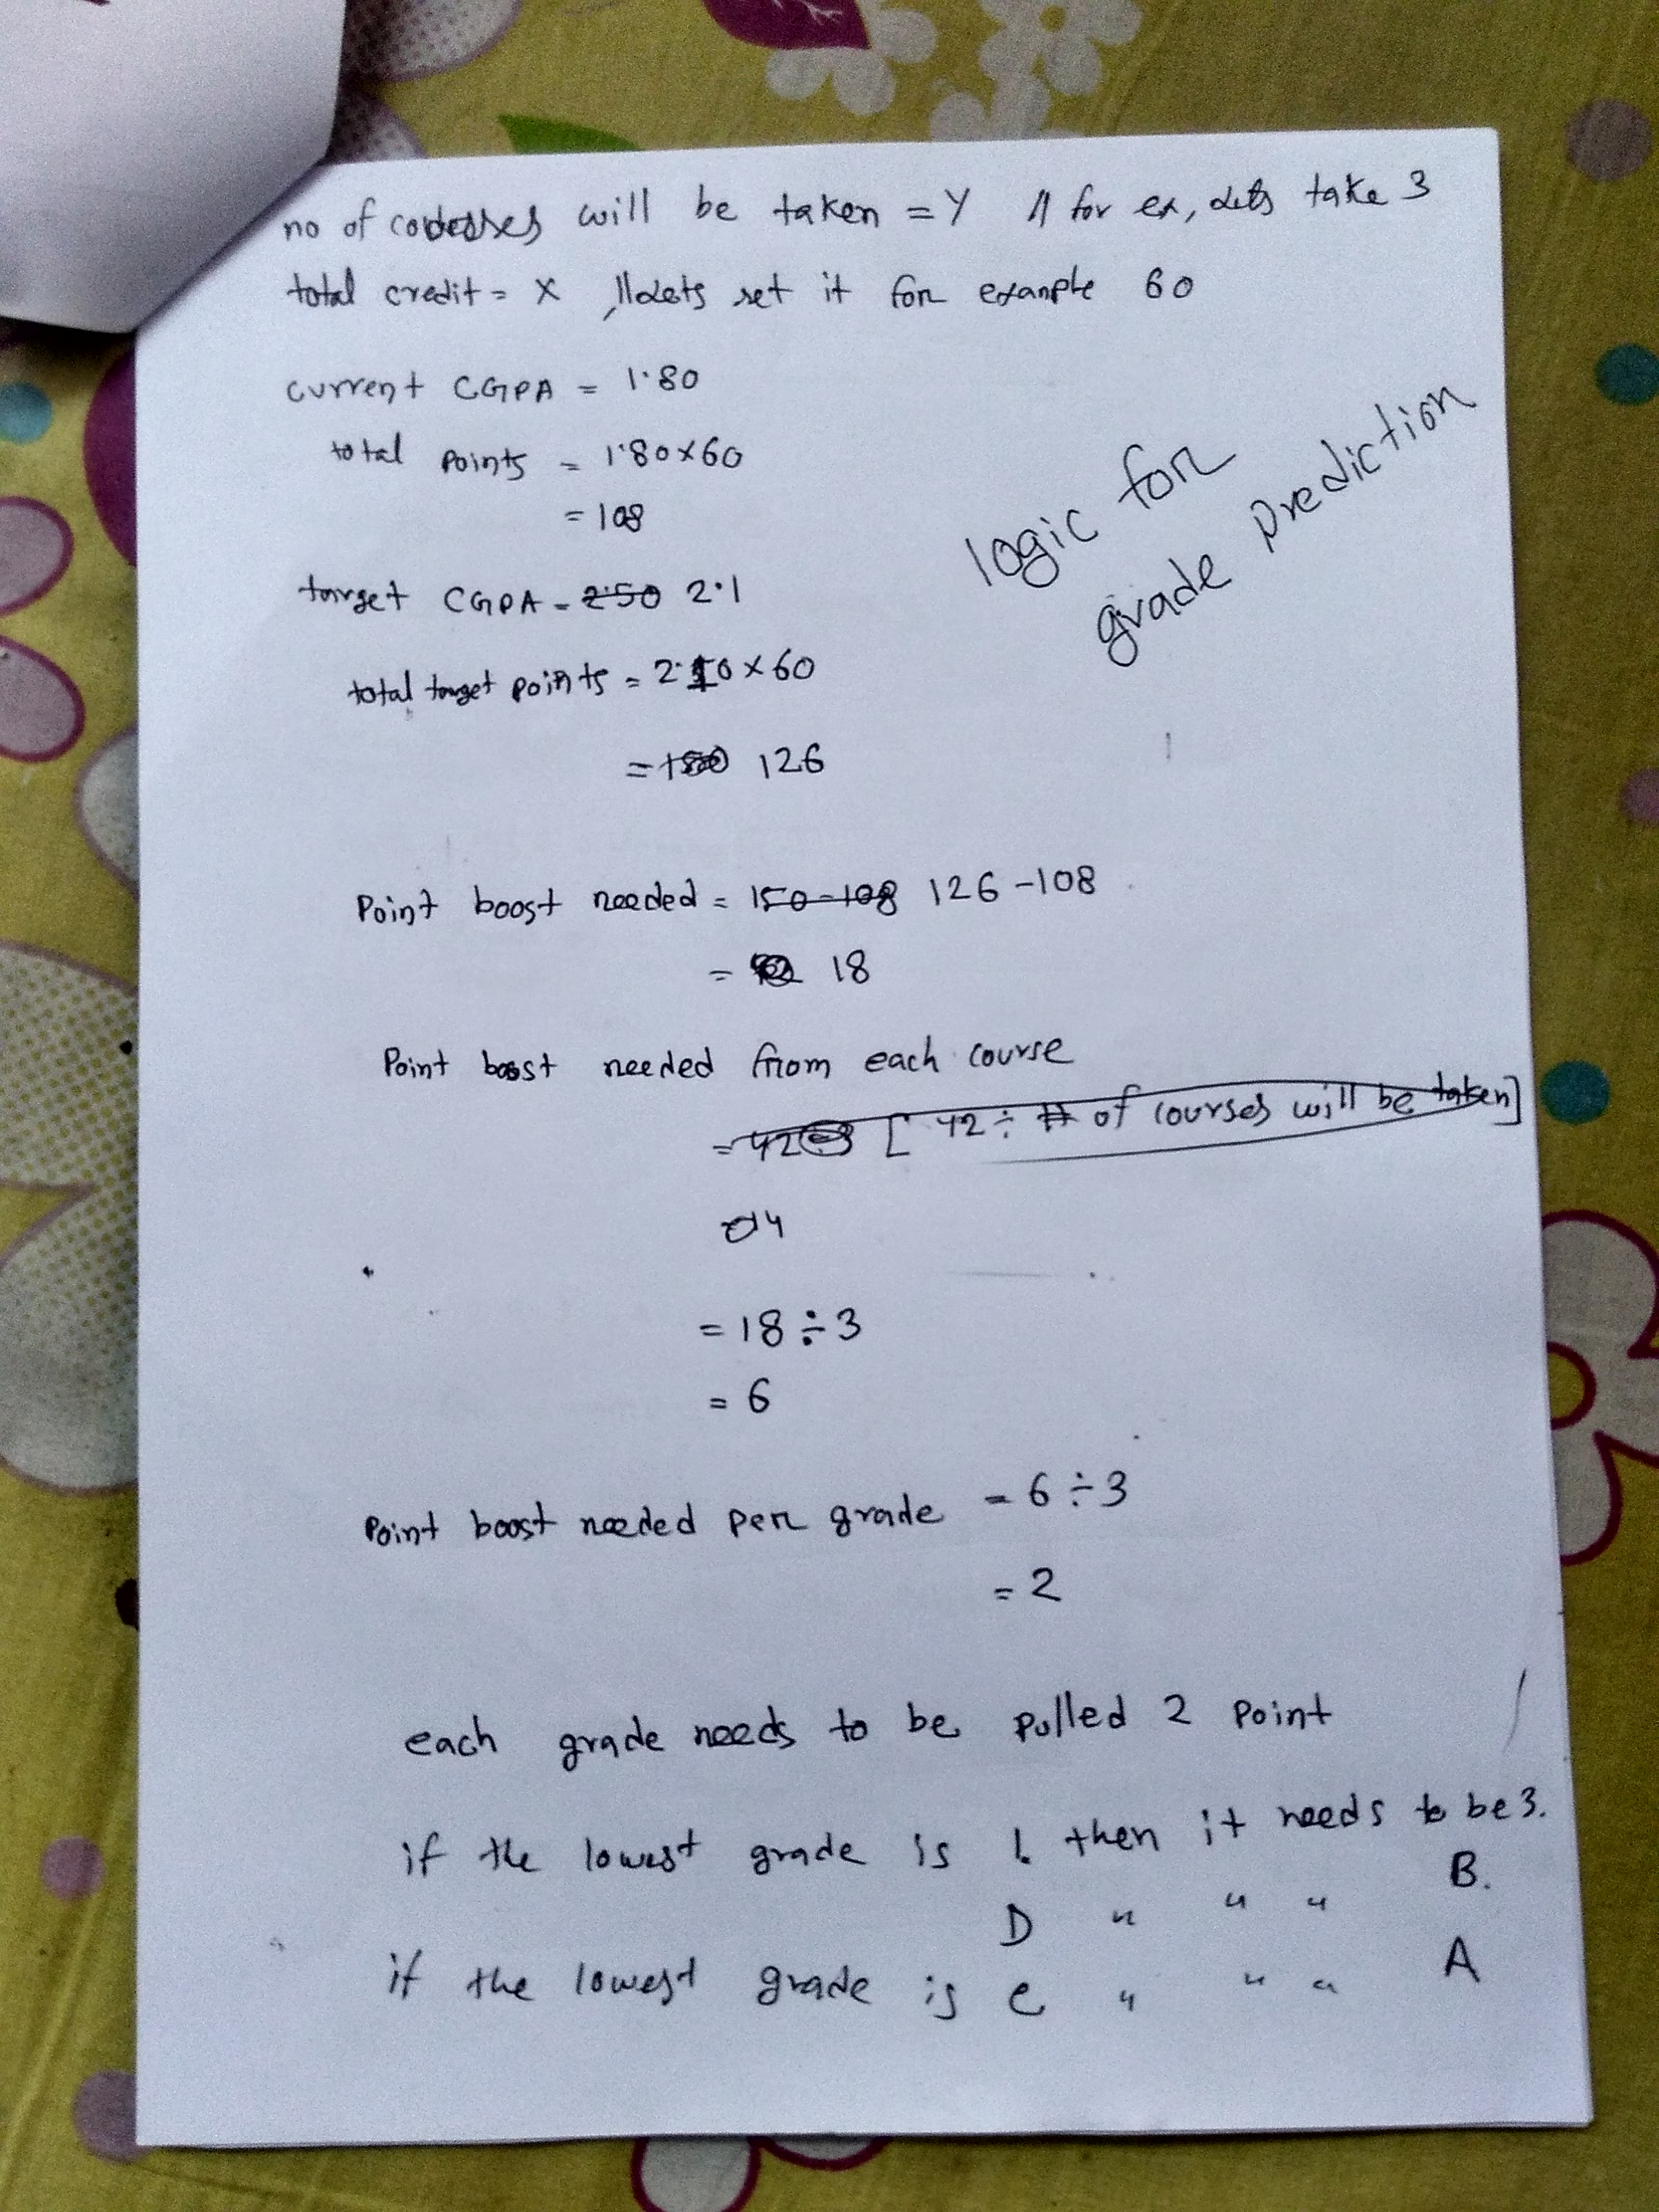 no of courses will be taken = Y // for ex, lets take 3
total credit = X , // Lets set it for example 60
current CGPA = 1.80
total points = 1.80×60
= 108
logic for
grade prediction
target CGPA = 2.50 2.1
total target points = 2.10×60
= 150 126
Point boost needed = 150-108 126-108
= 42 18
Point boost needed from each course
= 42÷3 [42÷# of courses will be taken]
= 14
= 18÷3
= 6
Point boost needed per grade = 6÷3
= 2
each grade needs to be pulled 2 point
if the lowest grade is 1. then it needs to be 3.
D " " " B.
if the lowest grade is C " " " A